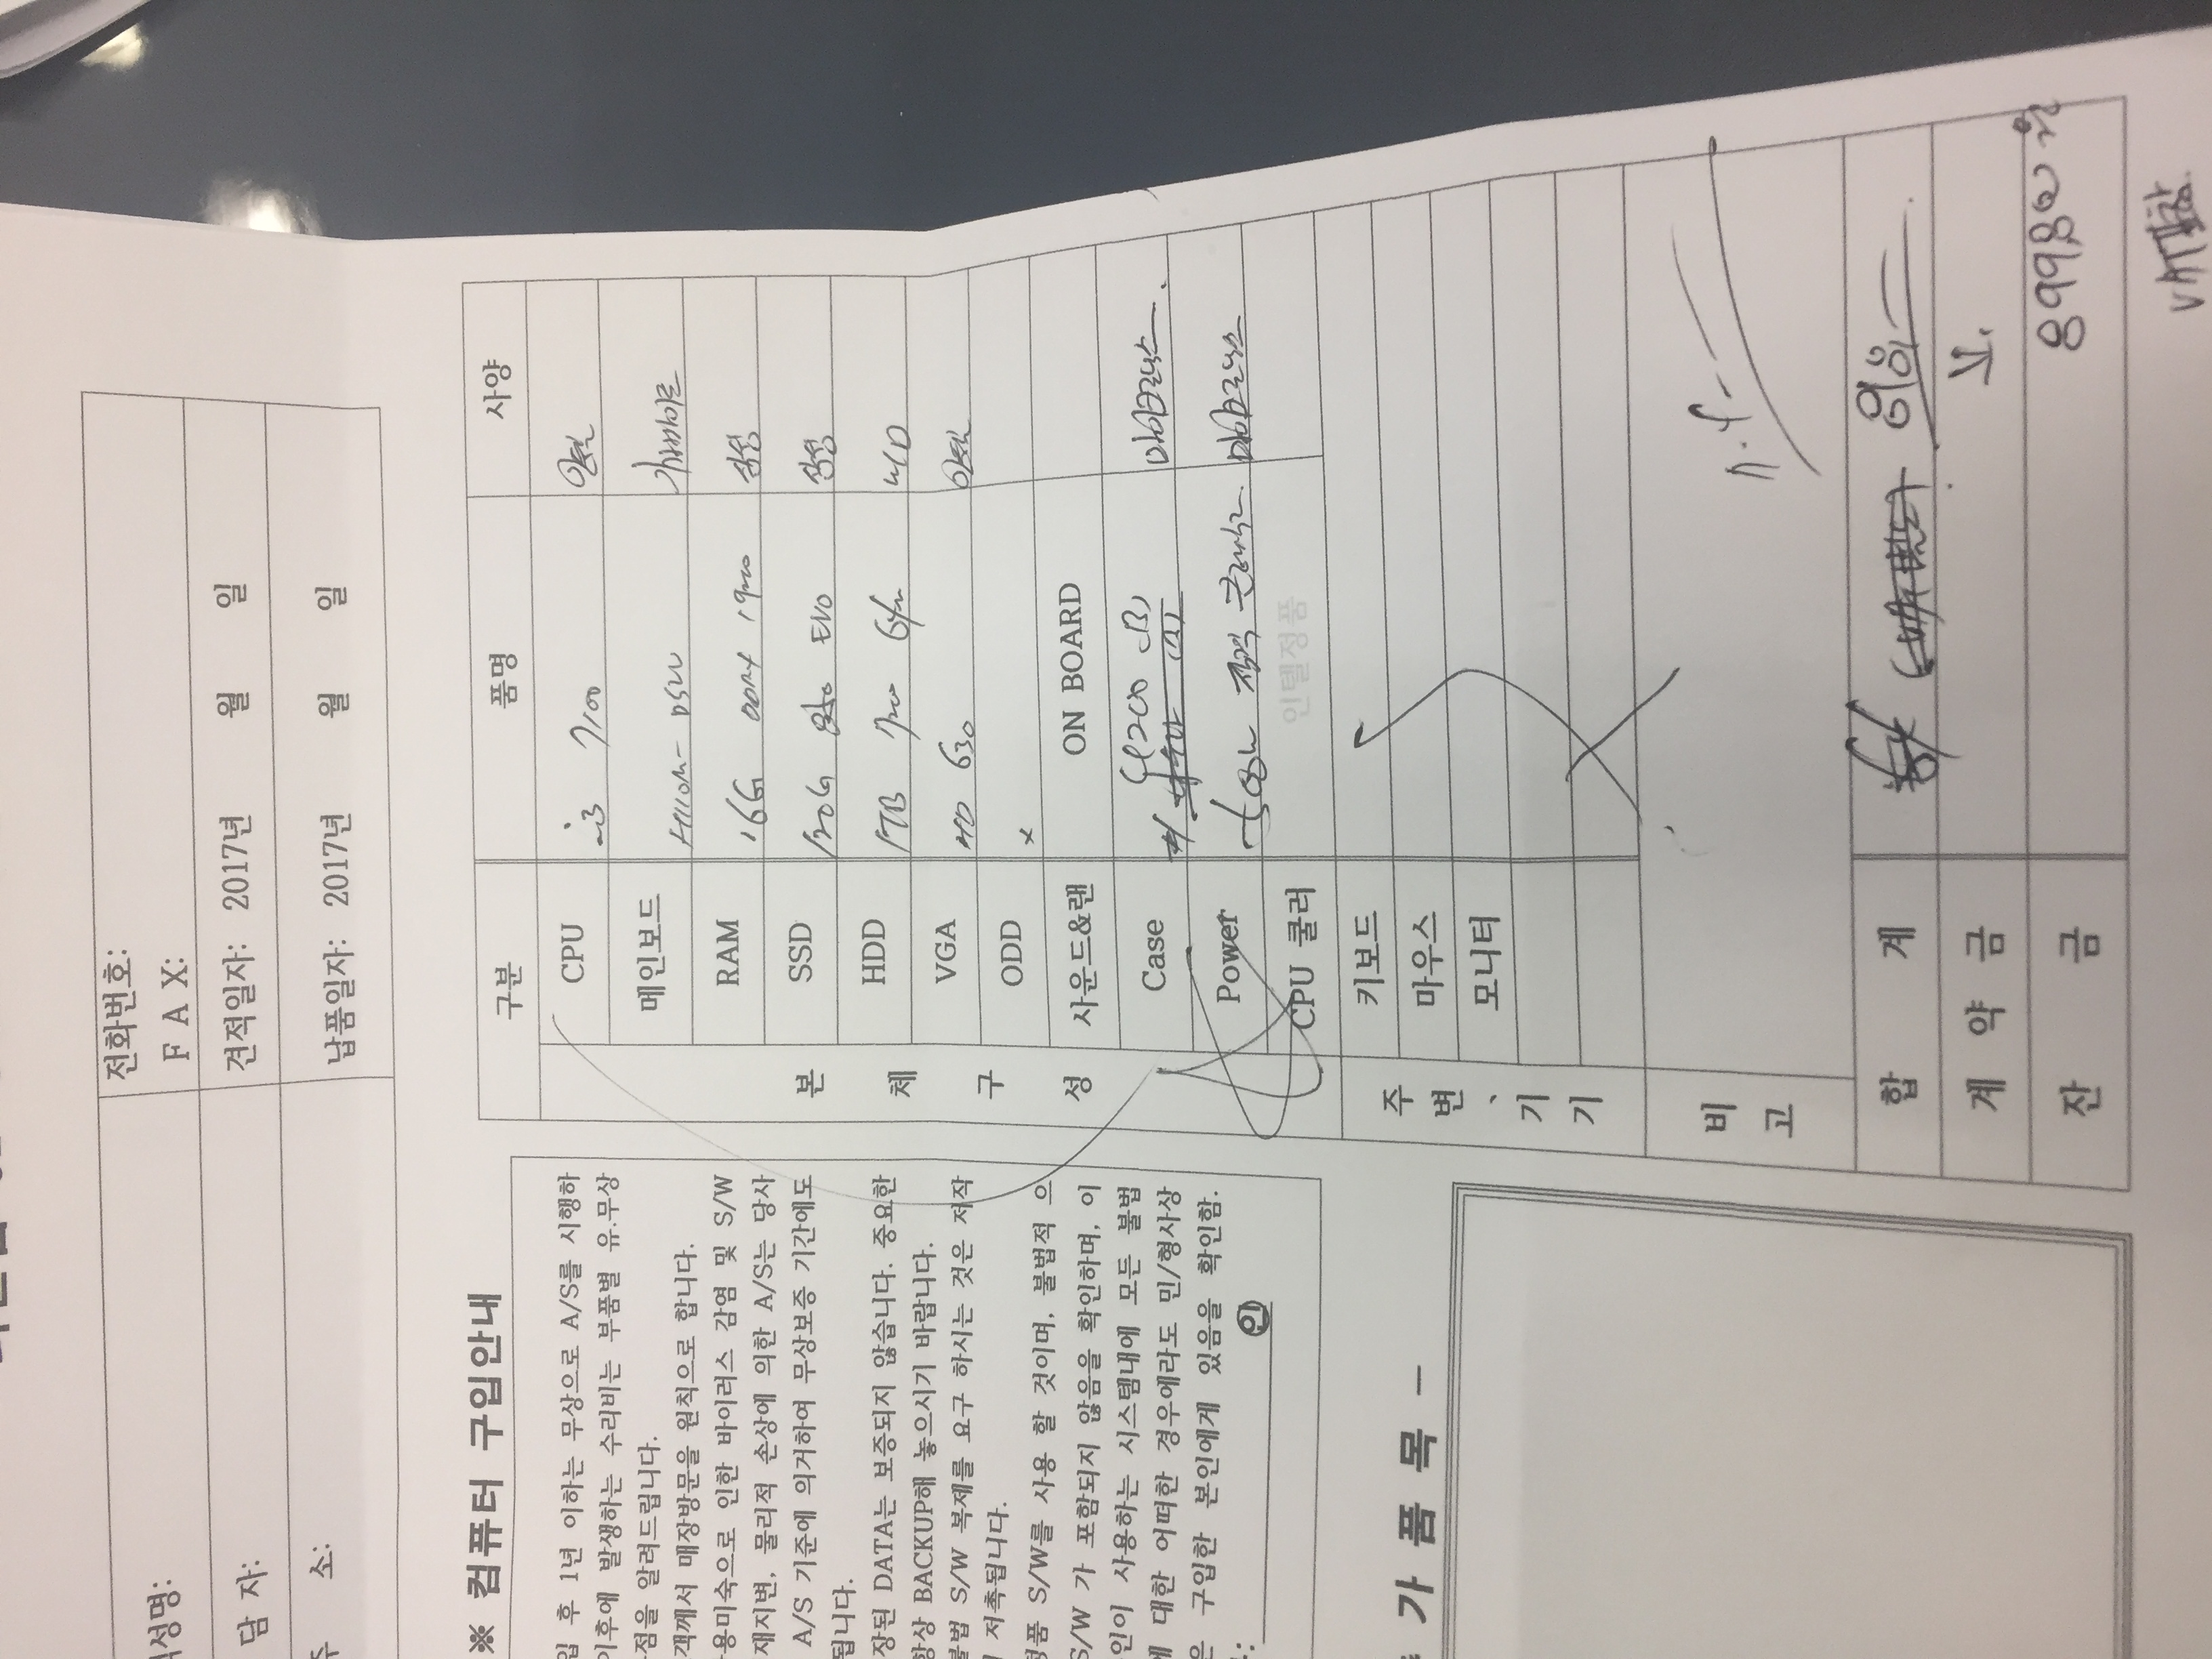 전화번호:
F A X:
견적일자: 2017년 월 일
납품일자: 2017년 월 일
성명:
담 자:
주 소:
※ 컴퓨터 구입안내
입 후 1년 이하는 무상으로 A/S를 시행하
이후에 발생하는 수리비는 부품별 유.무상
점을 알려드립니다.
객께서 매장방문을 원칙으로 합니다.
용미숙으로 인한 바이러스 감염 및 S/W
재지변, 물리적 손상에 의한 A/S는 당사
A/S 기준에 의거하여 무상보증 기간에도
됩니다.
장된 DATA는 보증되지 않습니다. 중요한
항상 BACKUP해 놓으시기 바랍니다.
불법 S/W 복제를 요구 하시는 것은 저작
저촉됩니다.
정품 S/W를 사용 할 것이며, 불법적 으
S/W 가 포함되지 않음을 확인하며, 이
인이 사용하는 시스템내에 모든 불법
에 대한 어떠한 경우에라도 민/형사상
은 구입한 본인에게 있음을 확인함.
인
가 품 목 -
구분 품명 사양
본 체 구 성
CPU i3 7100 인텔
메인보드 H110M- DS2V 기가바이트
RAM 16G DDR4 삼성
SSD 120G 850 EVO 삼성
HDD 1TB 7200 64M WD
VGA HD 630 인텔
ODD x
사운드&랜 ON BOARD
Case 마이크로닉스
Power 500W 정격 마이크로닉스
CPU 쿨러 인텔정품
주 변 、 기 기
키보드
마우스
모니터
비 고
합 계 있음
계 약 금
잔 금 899,800원
VAT포함